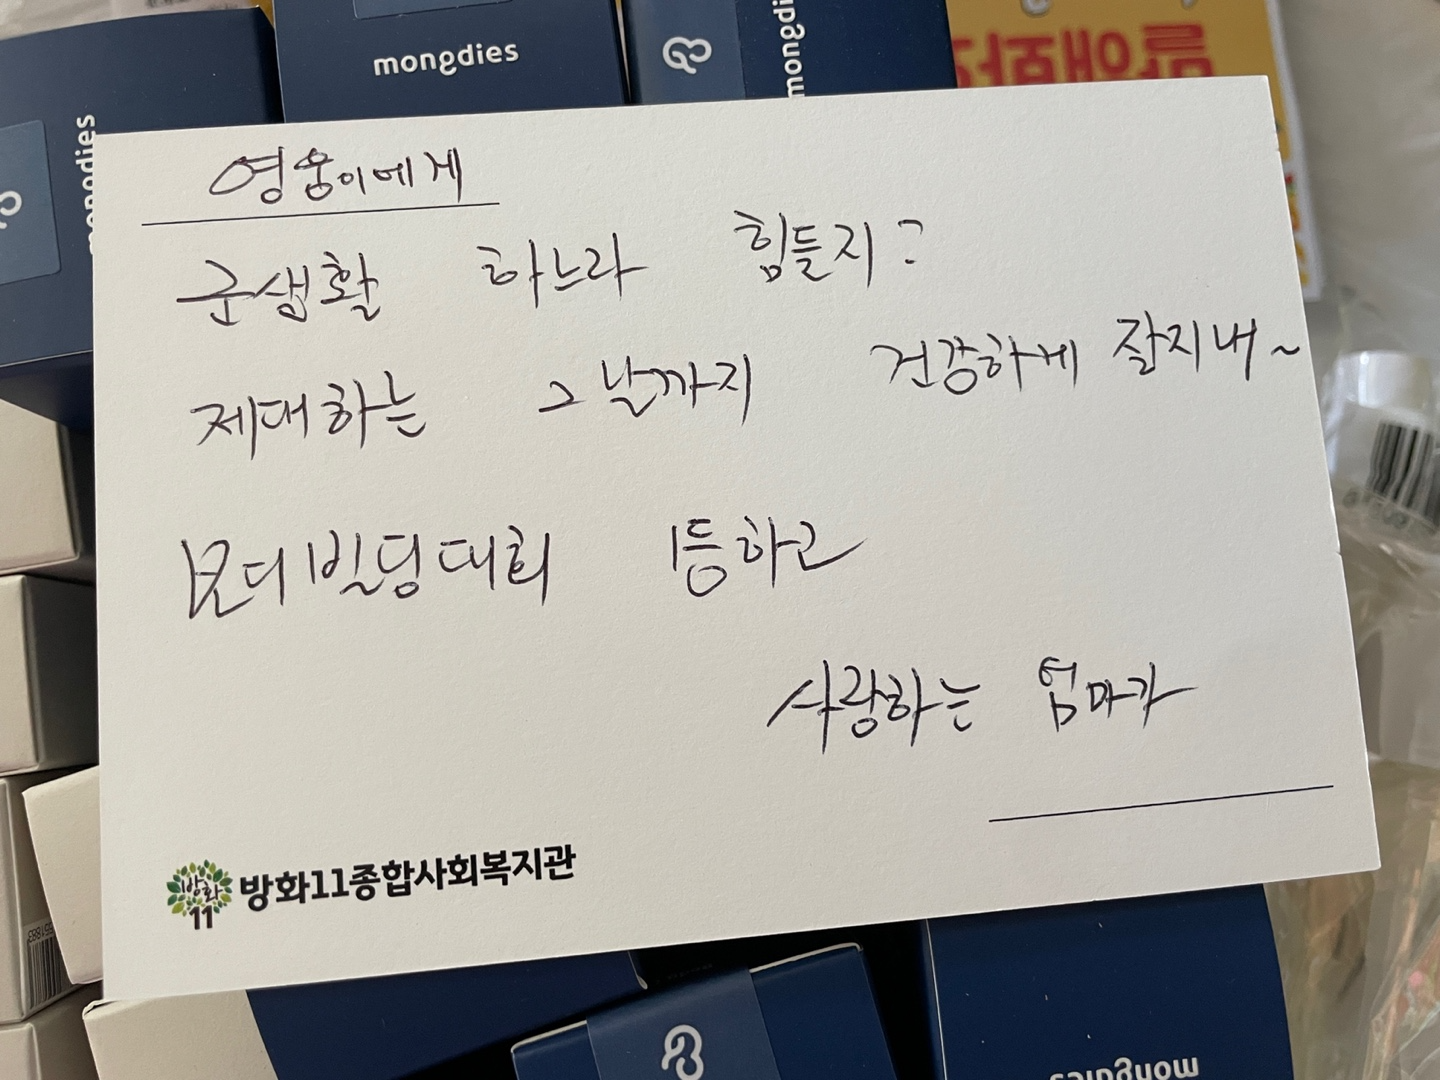 mongdies
mongdies
mongdies
영웅이에게
군생활 하느라 힘들지?
제대하는 그날까지 건강하게 잘지내~
보디빌딩대회 1등하고
사랑하는 엄마가
방화
11
방화11종합사회복지관
mongdies